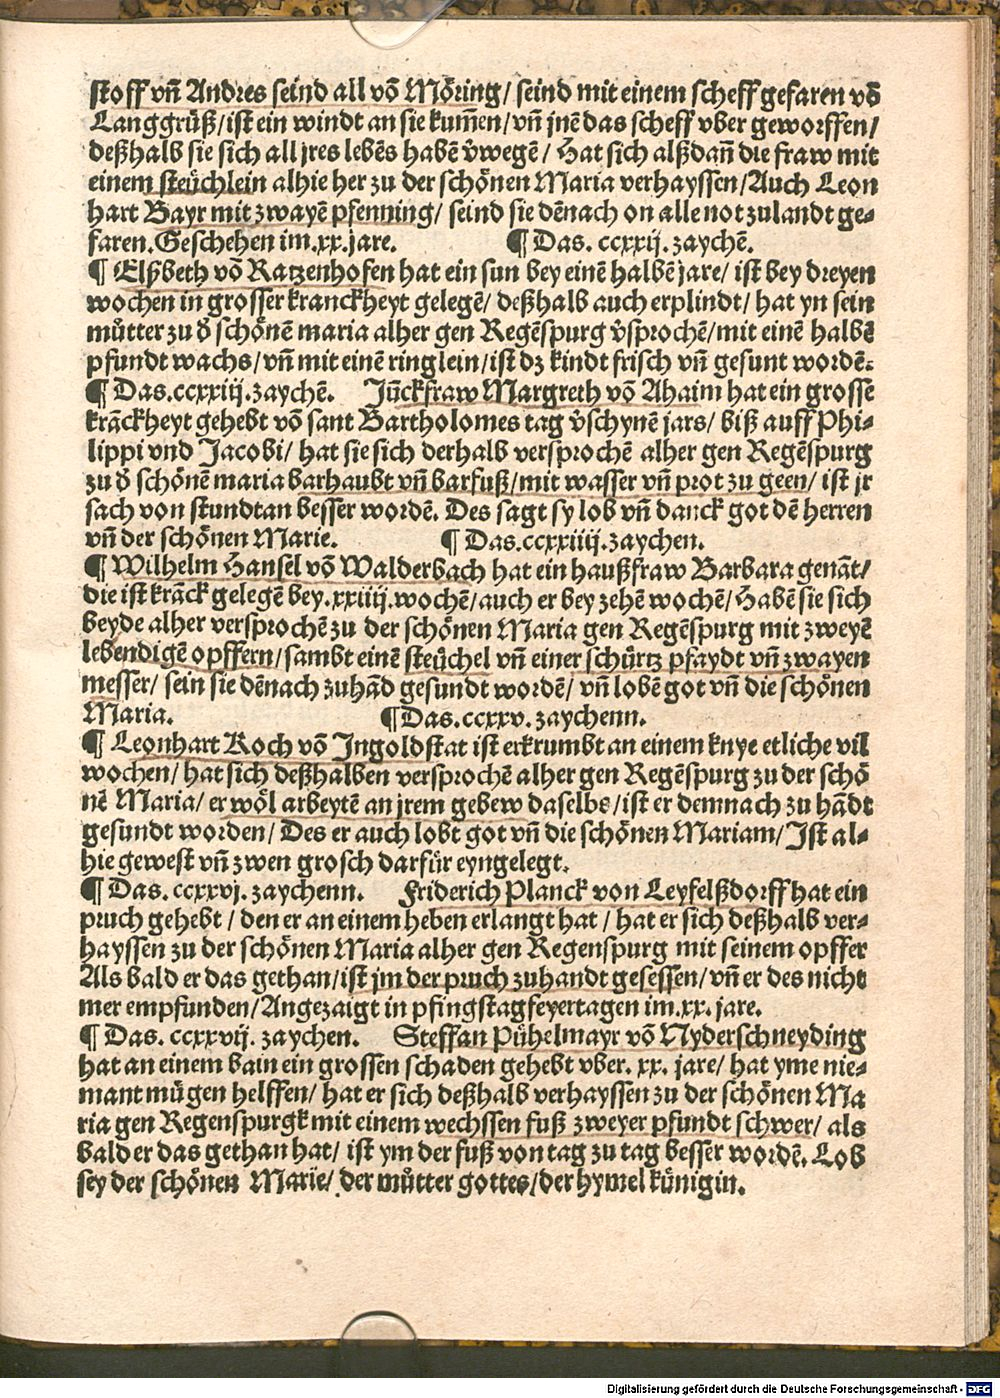 stoff vñ Andres seind all võ Möring/ seind mit einem scheff gefaren võ
Langgrüß/ ist ein windt an sie kum̃en/ vñ jnẽ das scheff vber geworffen/
deßhalb sie sich all jres lebẽs habẽ v̾wegẽ/ Hat sich alßdañ die fraw mit
einem steüchlein alhie her zu der schönen Maria verhayssen/ Auch Leon
hart Bayr mit zwayẽ pfenning/ seind sie dẽnach on alle not zulandt ge⸗
faren. Geschehen im .xx. jare. ¶ Das. ccxxij. zaychẽ.
¶ Elßbeth võ Ratzenhofen hat ein sun bey einẽ halbẽ jare/ ist bey dreyen
wochen in grosser kranckheyt gelegẽ/ deßhalb auch erplindt/ hat yn sein
můtter zu d̾ schönẽ maria alher gen Regẽspurg v̾sprochẽ/ mit einẽ halbẽ
pfundt wachs/ vñ mit einẽ ringlein/ ist dz kindt frisch vñ gesunt wordẽ.
¶ Das. ccxxiij. zaychẽ. Jũckfraw Margreth võ Ahaim hat ein grosse
krãckheyt gehebt võ sant Bartholomes tag v̾schynẽ jars/ biß auff Phi⸗
lippi vnd Jacobi/ hat sie sich derhalb versprochẽ alher gen Regẽspurg
zu d̾ schönẽ maria barhaubt vñ barfuß/ mit wasser vñ prot zu geen/ ist jr
sach von stundtan besser wordẽ. Des sagt sy lob vñ danck got dẽ herren
vñ der schönen Marie. ¶ Das. ccxxiiij. zaychen.
¶ Wilhelm Hansel võ Walderbach hat ein haußfraw Barbara genãt/
die ist krãck gelegẽ bey .xxiiij. wochẽ/ auch er bey zehẽ wochẽ/ Habẽ sie sich
beyde alher versprochẽ zu der schönen Maria gen Regẽspurg mit zweyẽ
lebendigẽ opffern/ sambt einẽ steüchel vñ einer schürtz pfaydt vñ zwayen
messer/ sein sie dẽnach zuhãd gesundt wordẽ/ vñ lobẽ got vñ die schönen
Maria. ¶ Das. ccxxv. zaychenn.
¶ Leonhart Koch võ Jngoldstat ist erkrumbt an einem knye etliche vil
wochen/ hat sich deßhalben versprochẽ alher gen Regẽspurg zu der schö
nẽ Maria/ er wöl arbeytẽ an jrem gebew daselbs/ ist er demnach zu hãdt
gesundt worden/ Des er auch lobt got vñ die schönen Mariam/ Jst al⸗
hie gewest vñ zwen grosch darfür eyngelegt.
¶ Das. ccxxvj. zaychenn. Friderich Planck von Leyfelßdorff hat ein
pruch gehebt/ den er an einem heben erlangt hat/ hat er sich deßhalb ver⸗
hayssen zu der schönen Maria alher gen Regenspurg mit seinem opffer
Als bald er das gethan/ ist jm der pruch zuhandt gesessen/ vñ er des nicht
mer empfunden/ Angezaigt in pfingstagfeyertagen im .xx. jare.
¶ Das. ccxxvij. zaychen. Steffan Pühelmayr võ Nyderschneyding
hat an einem bain ein grossen schaden gehebt vber. xx. jare/ hat yme nie⸗
mant mügen helffen/ hat er sich deßhalb verhayssen zu der schönen Ma
ria gen Regenspurgk mit einem wechssen fuß zweyer pfundt schwer/ als
bald er das gethan hat/ ist ym der fuß von tag zu tag besser wordẽ. Lob
sey der schönen Marie/ der můtter gottes/ der hymel künigin.
Digitalisierung gefördert durch die Deutsche Forschungsgemeinschaft - DFG